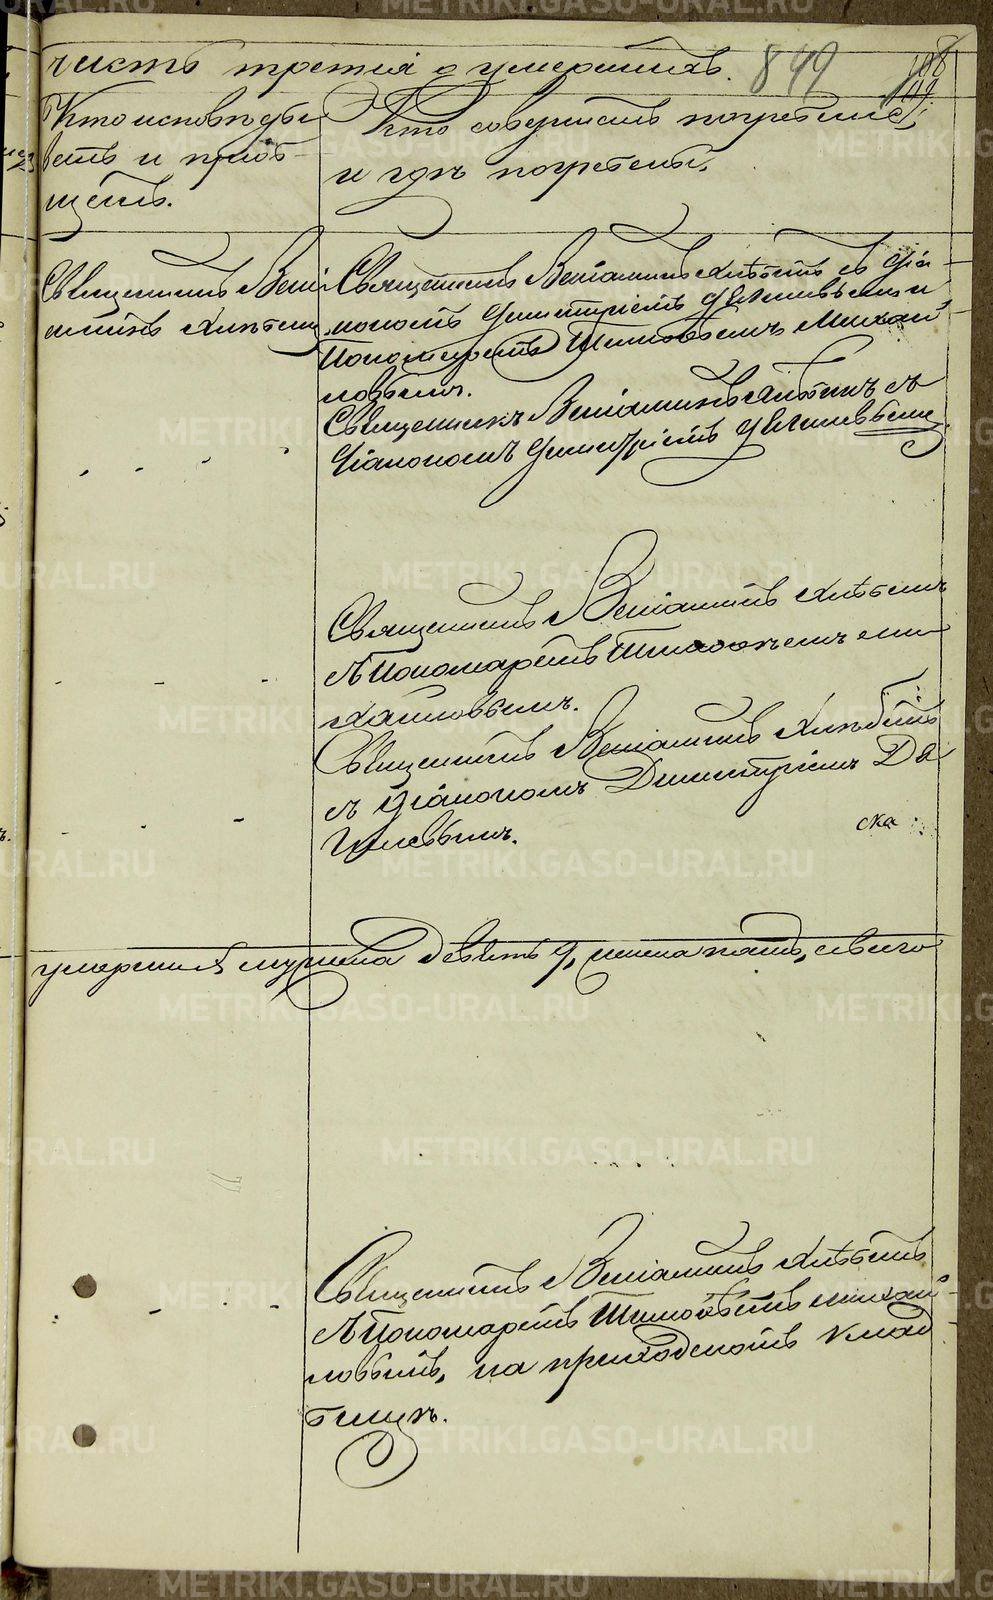 часть третія о умершихъ. 849 108
109.
Кто исповѣды
валъ и пріоб-
щалъ.
Кто совершалъ погребеніе,
и гдѣ погребены.
Священникъ Вені
аминъ Хлѣбинъ
Священникъ Веніаминъ Хлѣбинъ съ Діа
кономъ Димитріемъ
Пономаремъ Тимоѳеемъ Михай
ловымъ.
Священникъ Веніаминъ Хлѣбинъ съ
Діакономъ Димитріемъ
Священникъ Веніаминъ Хлѣбинъ
съ Пономаремъ Тимоѳеемъ Ми
хайловымъ.
Священникъ Веніаминъ Хлѣбинъ
съ Діакономъ Димитріемъ
ска
умершихъ мужеска девять 9, женска пять, обоего
Священникъ Веніаминъ Хлѣбинъ
съ Пономаремъ Тимоѳеемъ Михай
ловымъ, на приходскомъ клад
бищѣ.
METRIKI.GASO-URAL.RU